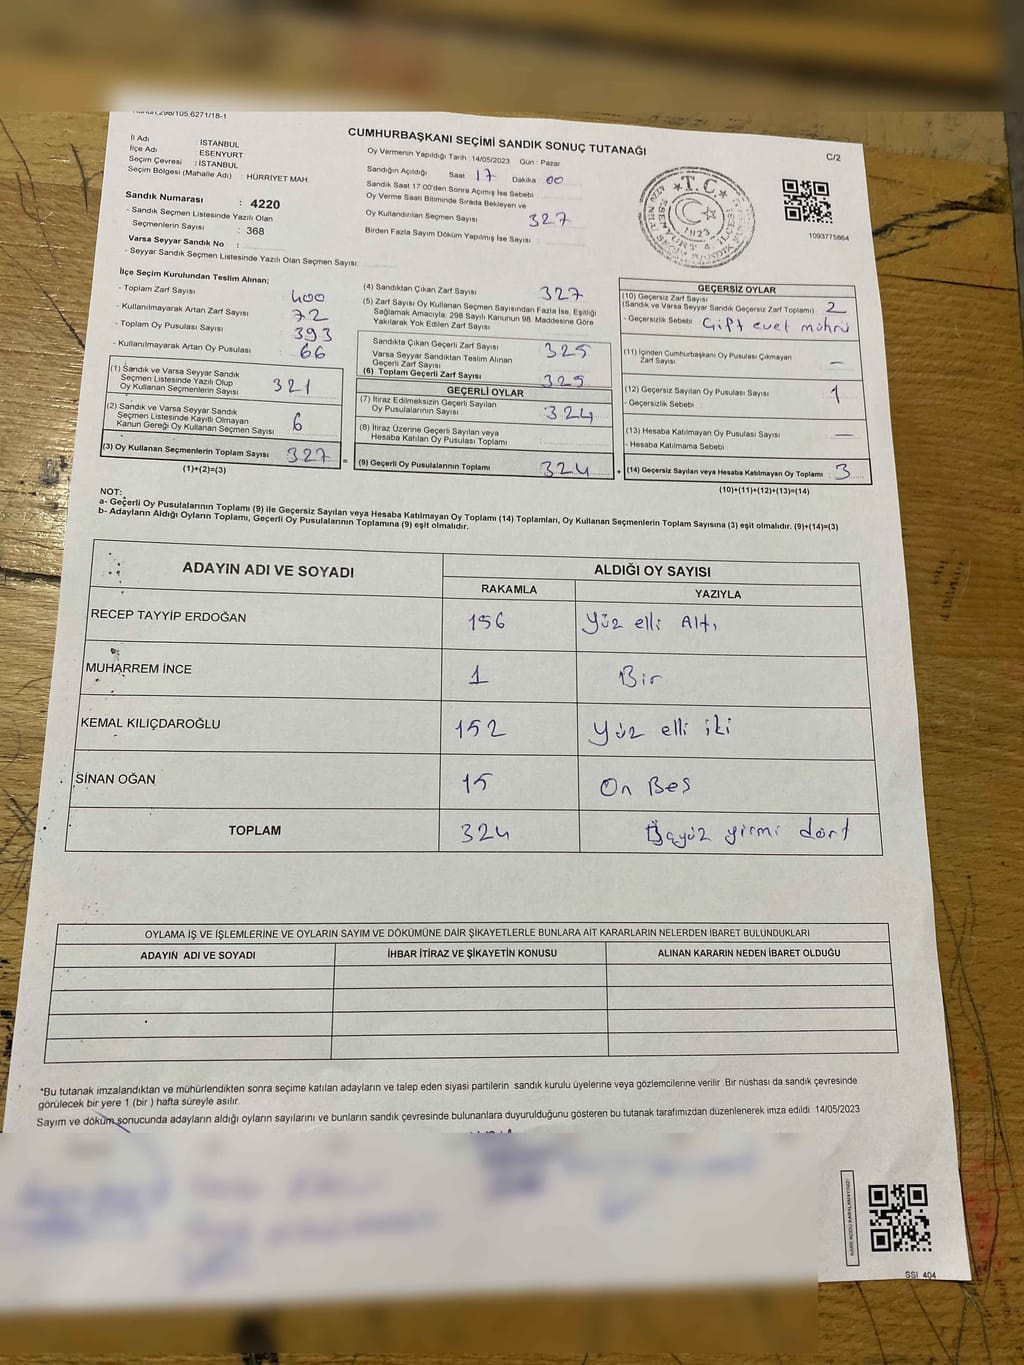 CUMHURBAŞKANI SEÇİMİ SANDIK SONUÇ TUTANAĞI
C/2
İl Adı : İSTANBUL
İlçe Adı : ESENYURT
Seçim Çevresi : İSTANBUL
Seçim Bölgesi (Mahalle Adı) : HÜRRİYET MAH.
Sandık Numarası : 4220
- Sandık Seçmen Listesinde Yazılı Olan
Seçmenlerin Sayısı : 368
Varsa Seyyar Sandık No :
- Seyyar Sandık Seçmen Listesinde Yazılı Olan Seçmen Sayısı:
Oy Vermenin Yapıldığı Tarih 14/05/2023 Gün : Pazar
Sandığın Açıldığı Saat 17 Dakika 00
Sandık Saat 17:00'den Sonra Açımış İse Sebebi
Oy Verme Saati Bitiminde Sırada Bekleyen ve
Oy Kullandırılan Seçmen Sayısı 327
Birden Fazla Sayım Döküm Yapılmış İse Sayısı :
T.C.
1923
1093775864
İlçe Seçim Kurulundan Teslim Alınan;
- Toplam Zarf Sayısı 400
- Kullanılmayarak Artan Zarf Sayısı 72
- Toplam Oy Pusulası Sayısı 393
- Kullanılmayarak Artan Oy Pusulası 66
(1) Sandık ve Varsa Seyyar Sandık
Seçmen Listesinde Yazılı Olup
Oy Kullanan Seçmenlerin Sayısı 321
(2) Sandık ve Varsa Seyyar Sandık
Seçmen Listesinde Kayıtlı Olmayan
Kanun Gereği Oy Kullanan Seçmen Sayısı 6
(3) Oy Kullanan Seçmenlerin Toplam Sayısı 327 =
(1)+(2)=(3)
(4) Sandıktan Çıkan Zarf Sayısı 327
(5) Zarf Sayısı Oy Kullanan Seçmen Sayısından Fazla İse, Eşitliği
Sağlamak Amacıyla, 298 Sayılı Kanunun 98. Maddesine Göre
Yakılarak Yok Edilen Zarf Sayısı
Sandıkta Çıkan Geçerli Zarf Sayısı 325
Varsa Seyyar Sandıktan Teslim Alınan
Geçerli Zarf Sayısı
(6) Toplam Geçerli Zarf Sayısı 325
GEÇERLİ OYLAR
(7) İtiraz Edilmeksizin Geçerli Sayılan
Oy Pusulalarının Sayısı 324
(8) İtiraz Üzerine Geçerli Sayılan veya
Hesaba Katılan Oy Pusulası Toplamı
(9) Geçerli Oy Pusulalarının Toplamı 324 +
GEÇERSİZ OYLAR
(10) Geçersiz Zarf Sayısı
(Sandık ve Varsa Seyyar Sandık Geçersiz Zarf Toplamı) 2
- Geçersizlik Sebebi Çift evet mührü
(11) İçinden Cumhurbaşkanı Oy Pusulası Çıkmayan
Zarf Sayısı —
(12) Geçersiz Sayılan Oy Pusulası Sayısı 1
- Geçersizlik Sebebi
(13) Hesaba Katılmayan Oy Pusulası Sayısı —
- Hesaba Katılmama Sebebi
(14) Geçersiz Sayılan veya Hesaba Katılmayan Oy Toplamı 3
(10)+(11)+(12)+(13)=(14)
NOT:
a- Geçerli Oy Pusulalarının Toplamı (9) ile Geçersiz Sayılan veya Hesaba Katılmayan Oy Toplamı (14) Toplamları, Oy Kullanan Seçmenlerin Toplam Sayısına (3) eşit olmalıdır. (9)+(14)=(3)
b- Adayların Aldığı Oyların Toplamı, Geçerli Oy Pusulalarının Toplamına (9) eşit olmalıdır.
ADAYIN ADI VE SOYADI
ALDIĞI OY SAYISI
RAKAMLA YAZIYLA
RECEP TAYYİP ERDOĞAN 156 Yüz elli Altı
MUHARREM İNCE 1 Bir
KEMAL KILIÇDAROĞLU 152 Yüz elli iki
SİNAN OĞAN 15 On Beş
TOPLAM 324 Üçyüz yirmi dört
OYLAMA İŞ VE İŞLEMLERİNE VE OYLARIN SAYIM VE DÖKÜMÜNE DAİR ŞİKAYETLERLE BUNLARA AİT KARARLARIN NELERDEN İBARET BULUNDUKLARI
ADAYIN ADI VE SOYADI İHBAR İTİRAZ VE ŞİKAYETİN KONUSU ALINAN KARARIN NEDEN İBARET OLDUĞU
*Bu tutanak imzalandıktan ve mühürlendikten sonra seçime katılan adayların ve talep eden siyasi partilerin sandık kurulu üyelerine veya gözlemcilerine verilir. Bir nüshası da sandık çevresinde
görülecek bir yere 1 (bir ) hafta süreyle asılır.
Sayım ve döküm sonucunda adayların aldığı oyların sayılarını ve bunların sandık çevresinde bulunanlara duyurulduğunu gösteren bu tutanak tarafımızdan düzenlenerek imza edildi. 14/05/2023
KARE KODU KARALAMAYINIZ!
SSI_404